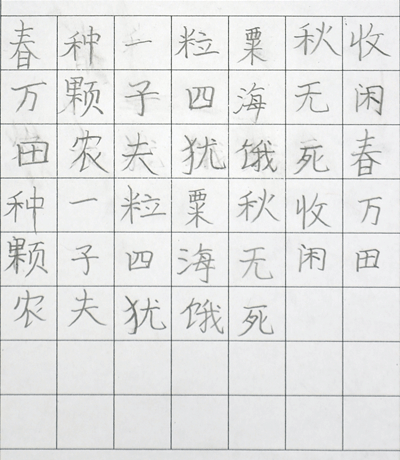 春种一粒粟秋收
万颗子四海无闲
田农夫犹饿死春
种一粒粟秋收万
颗子四海无闲田
农夫犹饿死